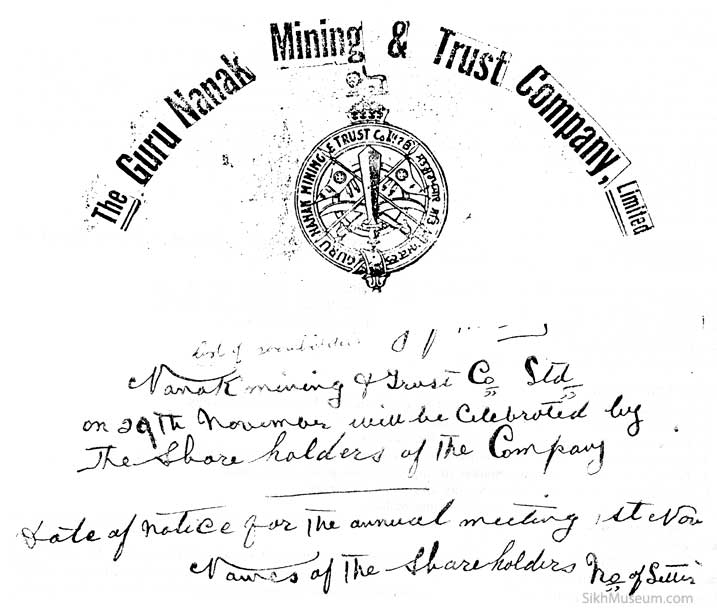 The Guru Nanak Mining & Trust Company, Limited
GURU NANAK MINING & TRUST Co
List of
Nanak mining & Trust Co Ltd
on 29Th November will be Celebrated by
The Share holders of The Company
Date of notice for The annual meeting 1st Nov
Names of The Shareholders No of Letter
SikhMuseum.com